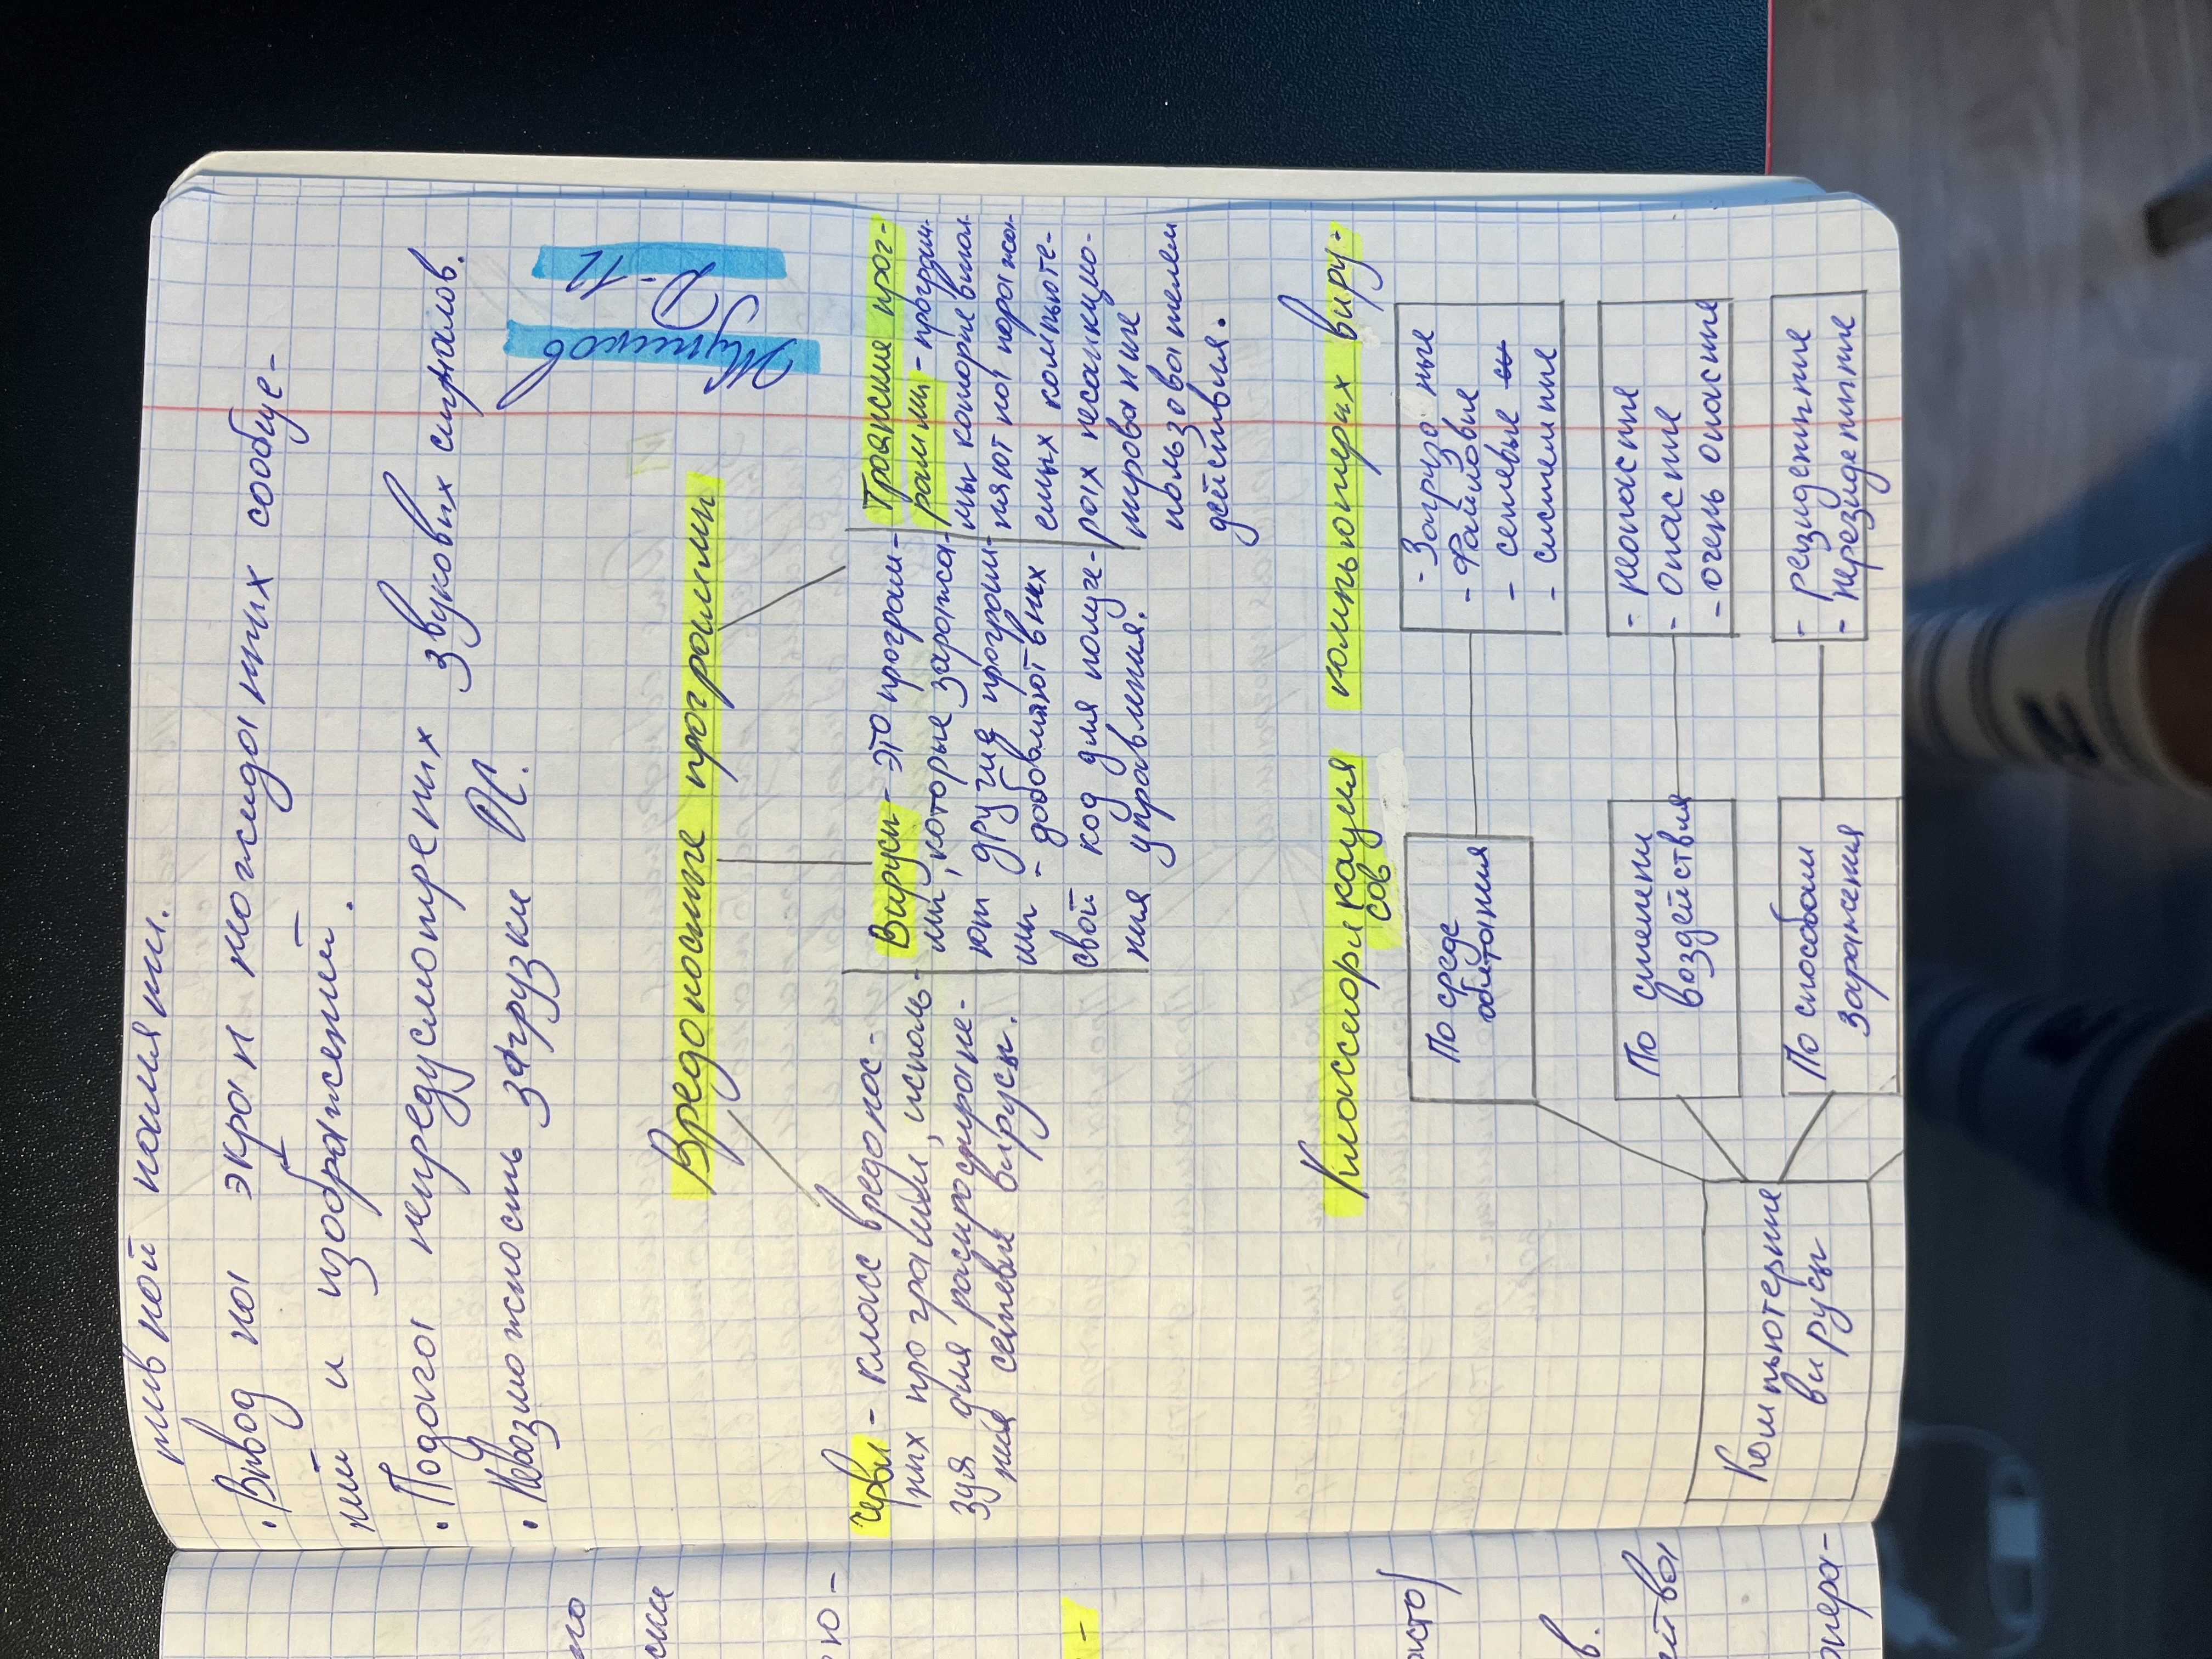 тив ной памяти.
• Вывод на экран неожиданных сообще-
ний и изображений.
• Подача непредусмотреных звуковых сигналов.
• Невозможность загрузки ОС.
Д-12
Вредоносные программы
Черви - класс вредонос-
ных программ, исполь-
зуя для распростране-
ния сетевые вирусы.
Вирусы - это програм-
мы, которые заража-
ют другие програм-
мы - добавляют в них
свой код для получе-
ния управления.
Троянские прог-
раммы - програм-
мы которые выпол-
няют на поражон-
емых компьюте-
рах несанкцио-
нированные
пользователем
действия.
Классификация компьютерных виру-
сов
Компьютерные
вирусы
По среде
обитания
- Загрузо ные
- Файловые
- сетевые
- системные
По степени
воздействия
- неопасные
- Опасные
- очень опасные
По способам
Заражения
- резидентные
- нерезидентные
ого
ю-
в.